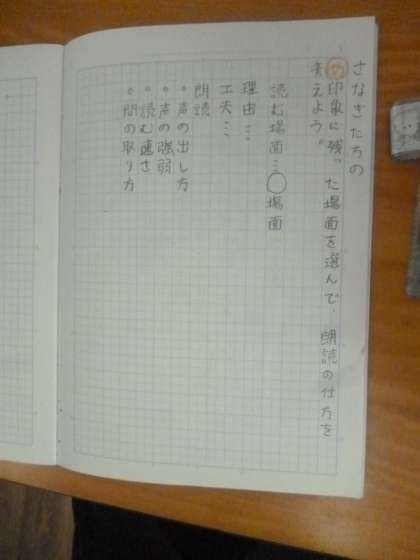 さなぎたちの
め印象に残った場面を選んで、朗読の仕方を
考えよう。
読む場面…○場面
理由…
工夫…
朗読
。声の出し方
。声の強弱
。読む速さ
。間の取り方